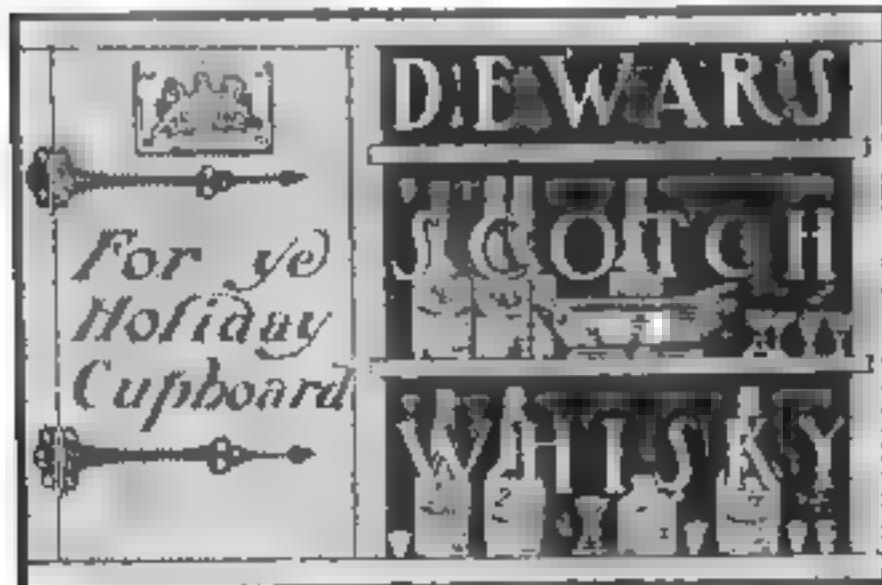 For ye
Holiday
Cupboard
DEWAR'S
SCOTCH
WHISKY